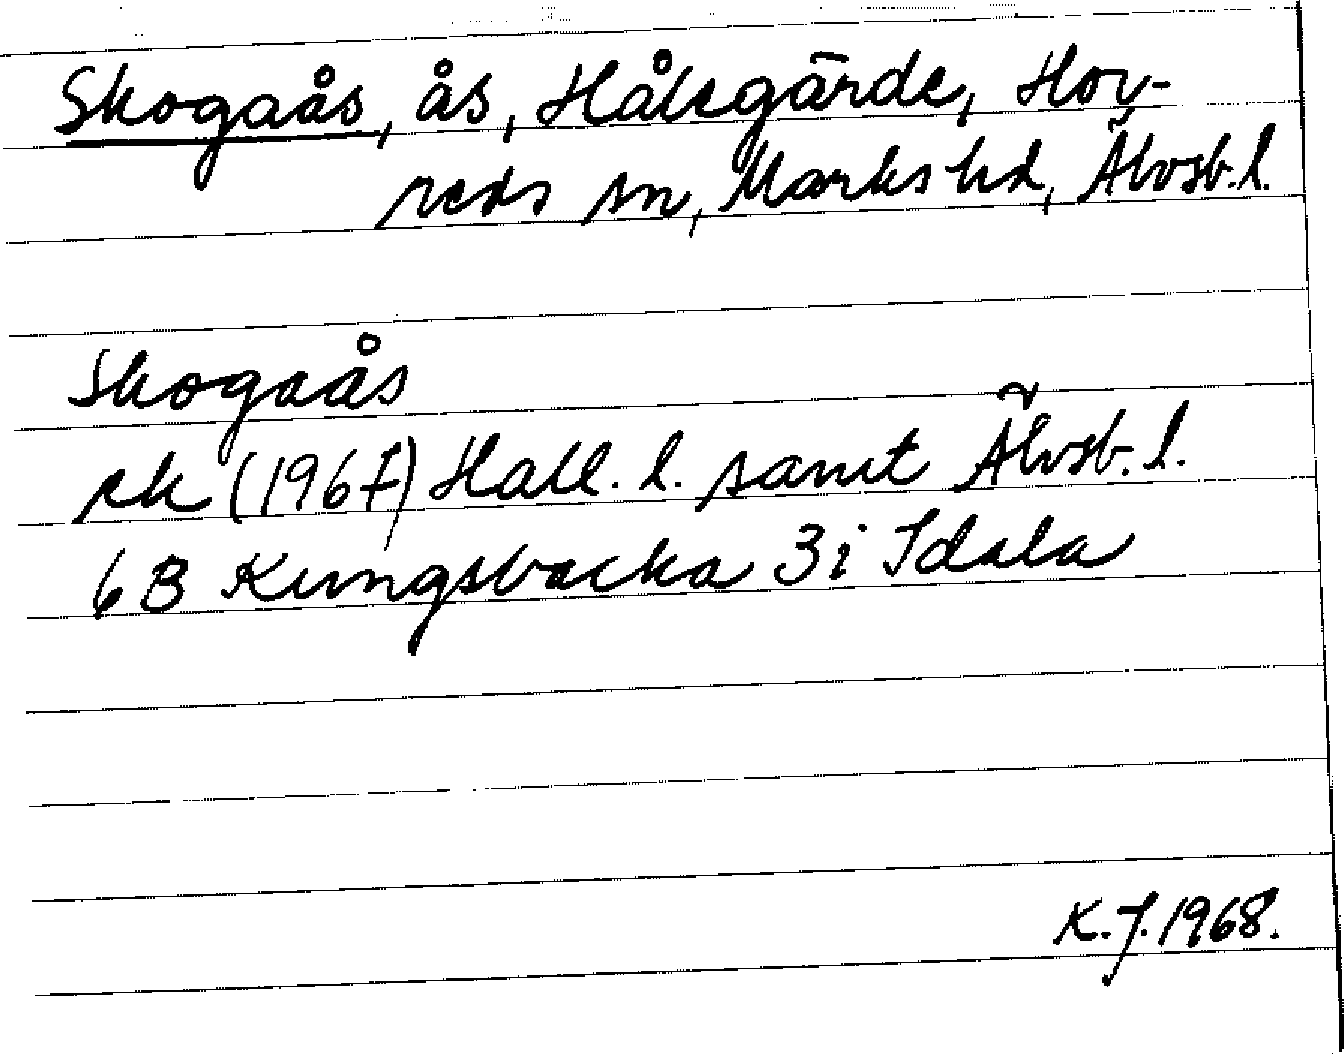 Skogaås, ås, Hålsgärde, Hov-
reds sn, Marks hd, Älvsb. l.
Skogaås
ek (1967) Hall. l. samt Älvsb. l.
6B Kungsbacka 3i Idala
K.J. 1968.